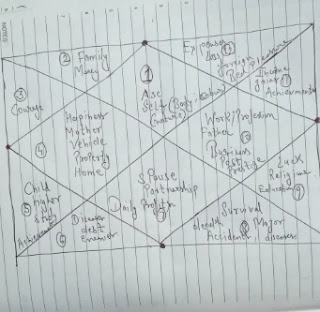 ② Family
Money
Expenses
Loss ⑫
foreign
Bed pleasure
Income
gains ⑪
Achievements
③
Courage
①
Asc
Self (Body
④
Happiness
Mother
Vehicle
Property
Home
Work/Profession
Father
⑩
Business
Prestige
Luck
Religion
Education ⑨
Child
⑤ higher
Spouse
Partnership
Daily
⑦
⑥
Disease
debt
Enemies
Survival
death ⑧ Major
Accident, diseases